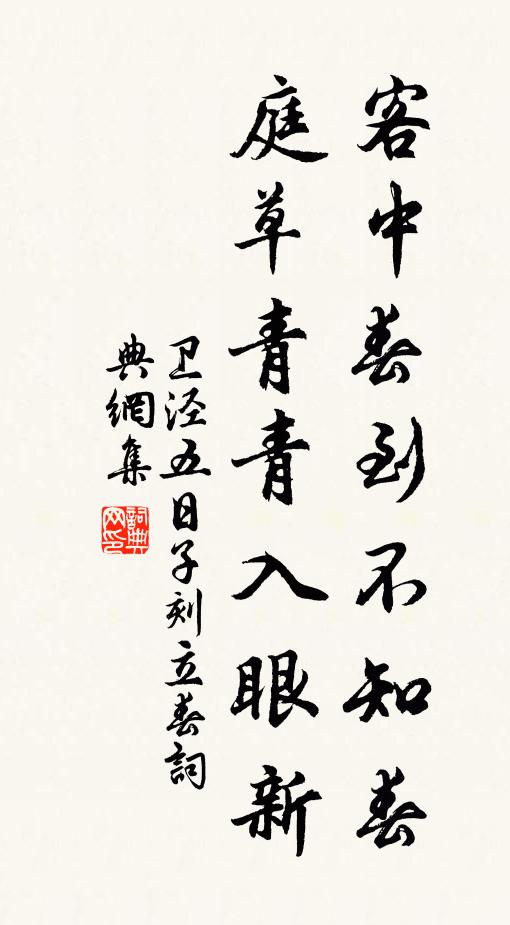 客中春到不知春
庭草青青入眼新
卫泾五日子刻立春詞
典網集
詞典
网印